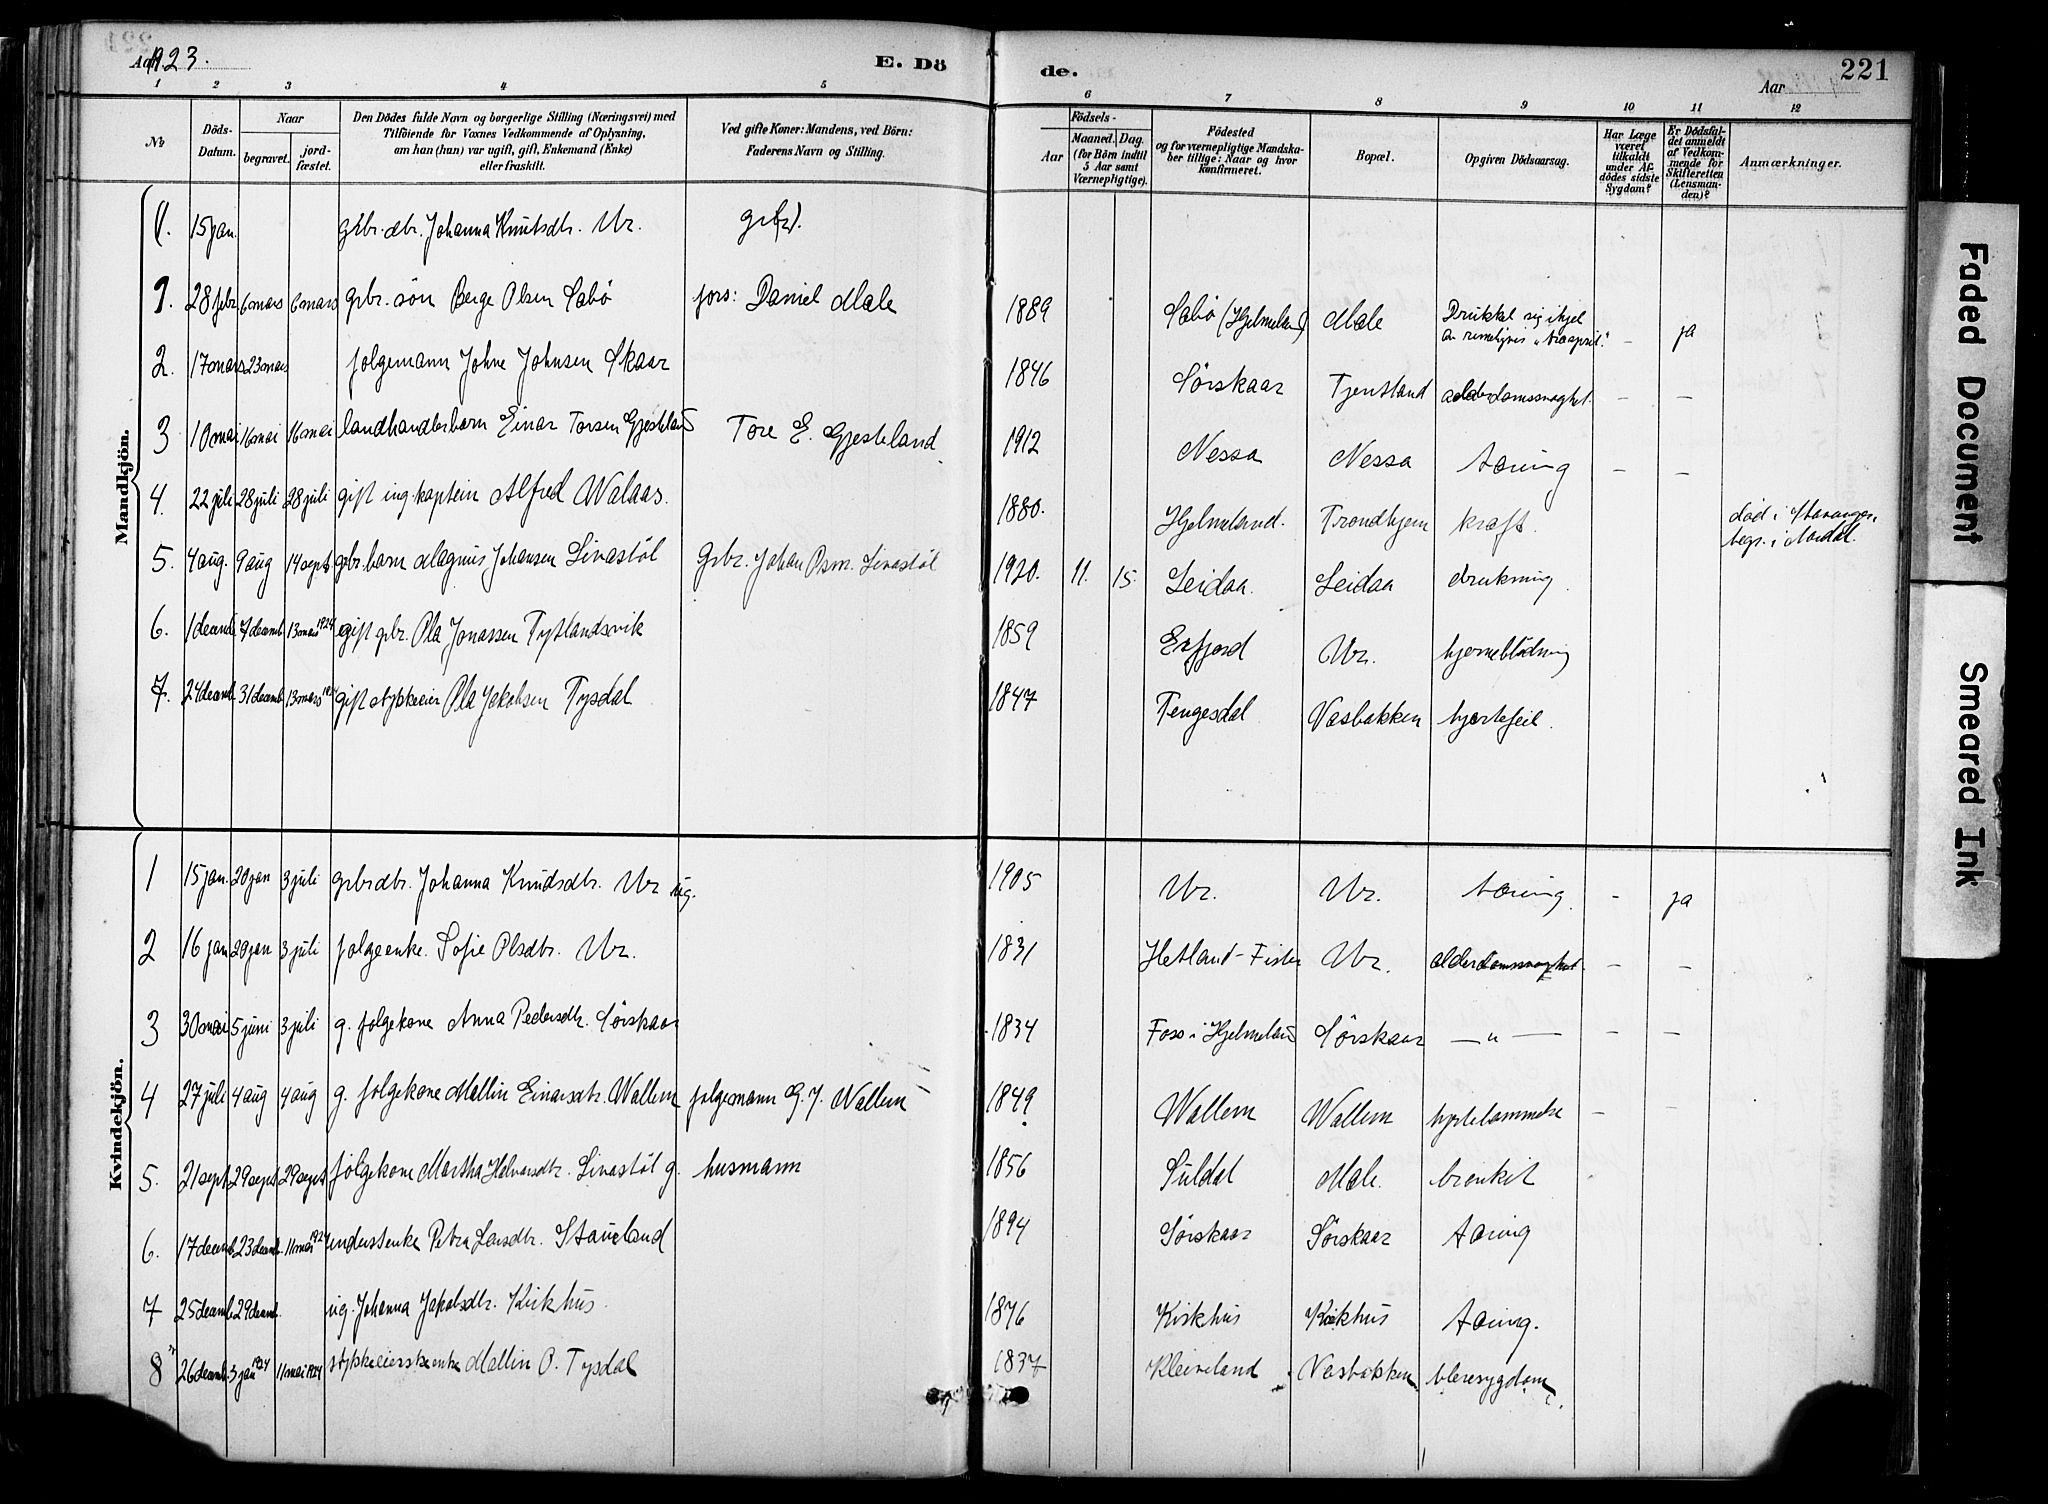 Aar 1923.
E. Dö
de.
Aar
221
1 2 3 4 5 6 7 8 9 10 11 12
№
Döds-
Datum.
Naar
begravet.
jord-
fæstet.
Den Dödes fulde Navn og borgerlige Stilling (Næringsvei) med
Tilföiende for Voxnes Vedkommende af Oplysning,
om han (hun) var ugift, gift, Enkemand (Enke)
eller fraskilt.
Ved gifte Koner: Mandens, ved Börn:
Faderens Navn og Stilling.
Födsels-
Aar
Maaned. Dag.
(for Börn indtil
5 Aar samt
Værnepligtige).
Födested
og for værnepligtige Mandska-
ber tillige: Naar og hvor
konfirmeret.
Bopæl.
Opgiven Dödsaarsag.
Har Læge
været
tilkaldt
under Af-
dödes sidste
Sygdom?
Er Dödsfal-
det anmeldt
af Vedkom-
mende for
Skifteretten
(Lensman-
den)?
Anmærkninger.
Mandkjön.
1. 15 jan. grbr. dtr. Johanna Knutsdtr. Ur.
1. 28 febr 6 mars 6 mars grbr. sön Berge Olsen Sabø fors: Daniel Male 1889 Sabø (Hjelmeland) Male Drukket sig ihjel - ja
2. 17 mars 23 mars folgemann Johne Johnsen Skaar 1846 Sørskaar Tjentland alderdomssvaghet. - -
3 10 mai 16 mai 16 mai landhandlerbarn Einar Torsen Gjesteland Tore E. Gjesteland 1912 Nessa Nessa tæring - -
4. 22 juli 28 juli 28 juli gift ing. kaptein Alfred Walaas. 1880. Hjelmeland. Trondhjem kræft. død i Stavanger,
begr. i Aardal.
5. 4 aug. 9 aug 14 sept grbr. barn Magnus Johansen Livastøl Grbr. Johan Osm. Livastøl 1920. 11. 15. Leidaa. Leidaa drukning
6. 1 decemb 7 decemb 13 mars 1924 gift grbr. Ola Jonassen Tytlandsvik 1859 Erfjord Ur. hjerneblødning
7. 24 decemb. 31 decemb 13 mars 1924 gift stykkeeier Ola Jakobsen Tysdal 1847 Tengesdal Vasbakken hjertefeil.
Kvindekjön.
1 15 jan. 20 jan 3 juli grbrdtr. Johanna Knudsdtr. Ur ug. 1905 Ur. Ur. tæring. - ja
2 16 jan 20 jan 3 juli folgeenke. Sofie Olsdtr. Ur. 1831 Hetland - Fister Ur. alderdomssvaghet. - -
3 30 mai 5 juni 3 juli g. folgekone Anna Pedersdtr. Sörskaar 1834 Foss i Hjelmeland Sörskaar — " — - -
4 27 juli 4 aug 4 aug g. folgekone Mallin Einarsdtr. Wallem folgemann G. J. Wallem 1849 Wallem Wallem hjertelammelse - -
5. 21 sept 29 sept 29 sept folgekone Martha Halvarsdtr. Livastøl g. husmann 1856 Suldal Male. bronkit
6. 17 decemb 23 decemb. 11 mai 1924 Petra Larsdtr. Staveland 1894 Sørskaar Sørskaar tæring
7 25 decemb 29 decemb. ug. Johanna Jakobsdtr. Kirkhus. 1876 Kirkhus Kirkhus tæring.
8 26 decemb. 3 jan 1924 11 mai 1924 stykkeeierske enke Mallin O. Tysdal 1837 Kleiveland Vasbakken blæresygdom.
Faded Document
Smeared Ink